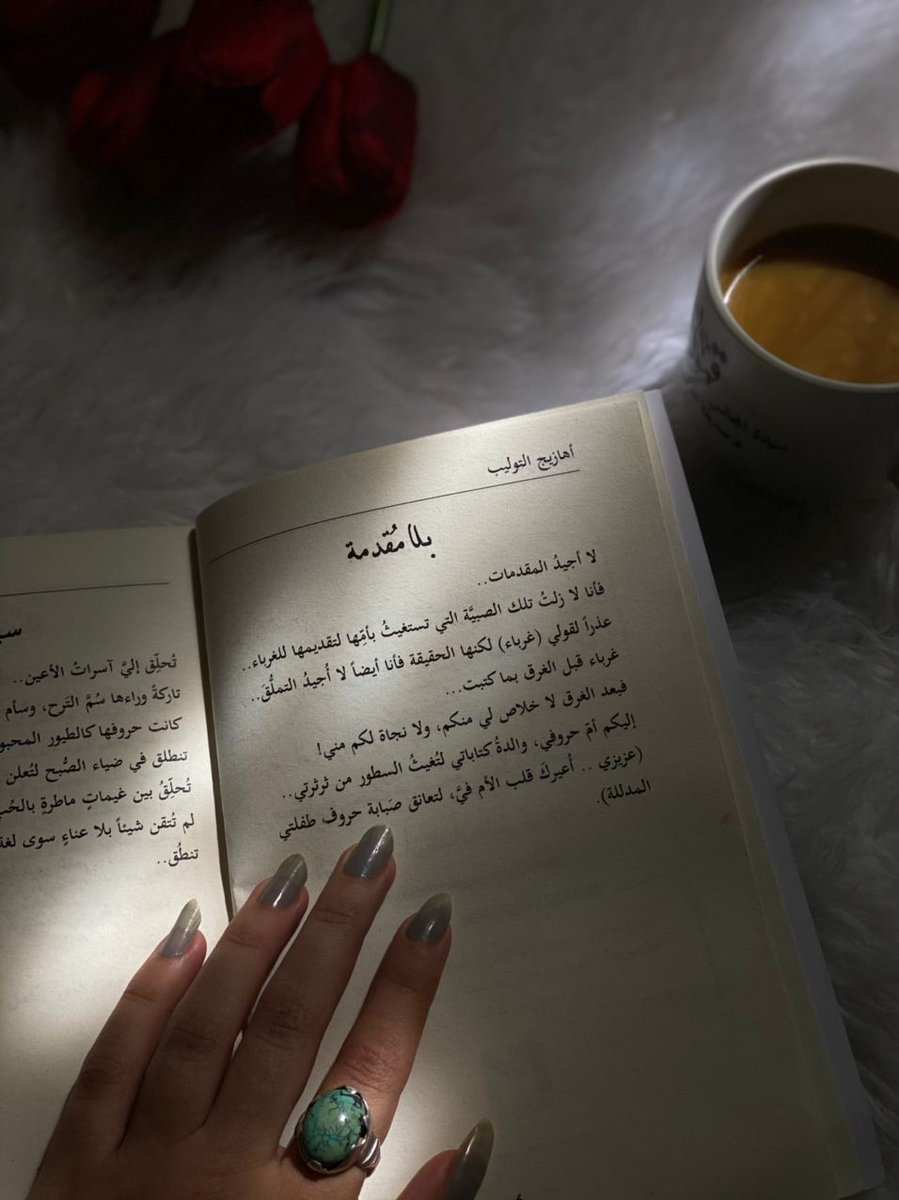 أهازيج التوليب
بلا مُقدمة
لا أجيدُ المقدمات..
فأنا لا زلتُ تلك الصبيَّة التي تستغيثُ بأمّها لتقديمها للغرباء..
عذراً لقولي (غرباء) لكنها الحقيقة فأنا أيضاً لا أُجيدُ التملُّقَ..
غرباء قبل الغرق بما كتبت...
فبعد الغرق لا خلاص لي منكم، ولا نجاة لكم مني!
إليكم أمّ حروفي، والدةُ كتاباتي لتُغيثُ السطور من ثرثرتي..
(عزيزي .. أُعيركَ قلب الأم فيَّ، لتعانق صَبابة حروف طفلتي
المدللة).
تُحلّق إليَّ آسراتُ الأعين..
تاركةً وراءها سُمَّ التَرح، وسأم
كانت حروفها كالطيور
تنطلق في ضياء الصُّبح لتُعلن
تُحلِّقُ بين غيماتٍ ماطرةٍ
لم تُتقن شيئاً بلا عناءٍ سوى
تنطُق..